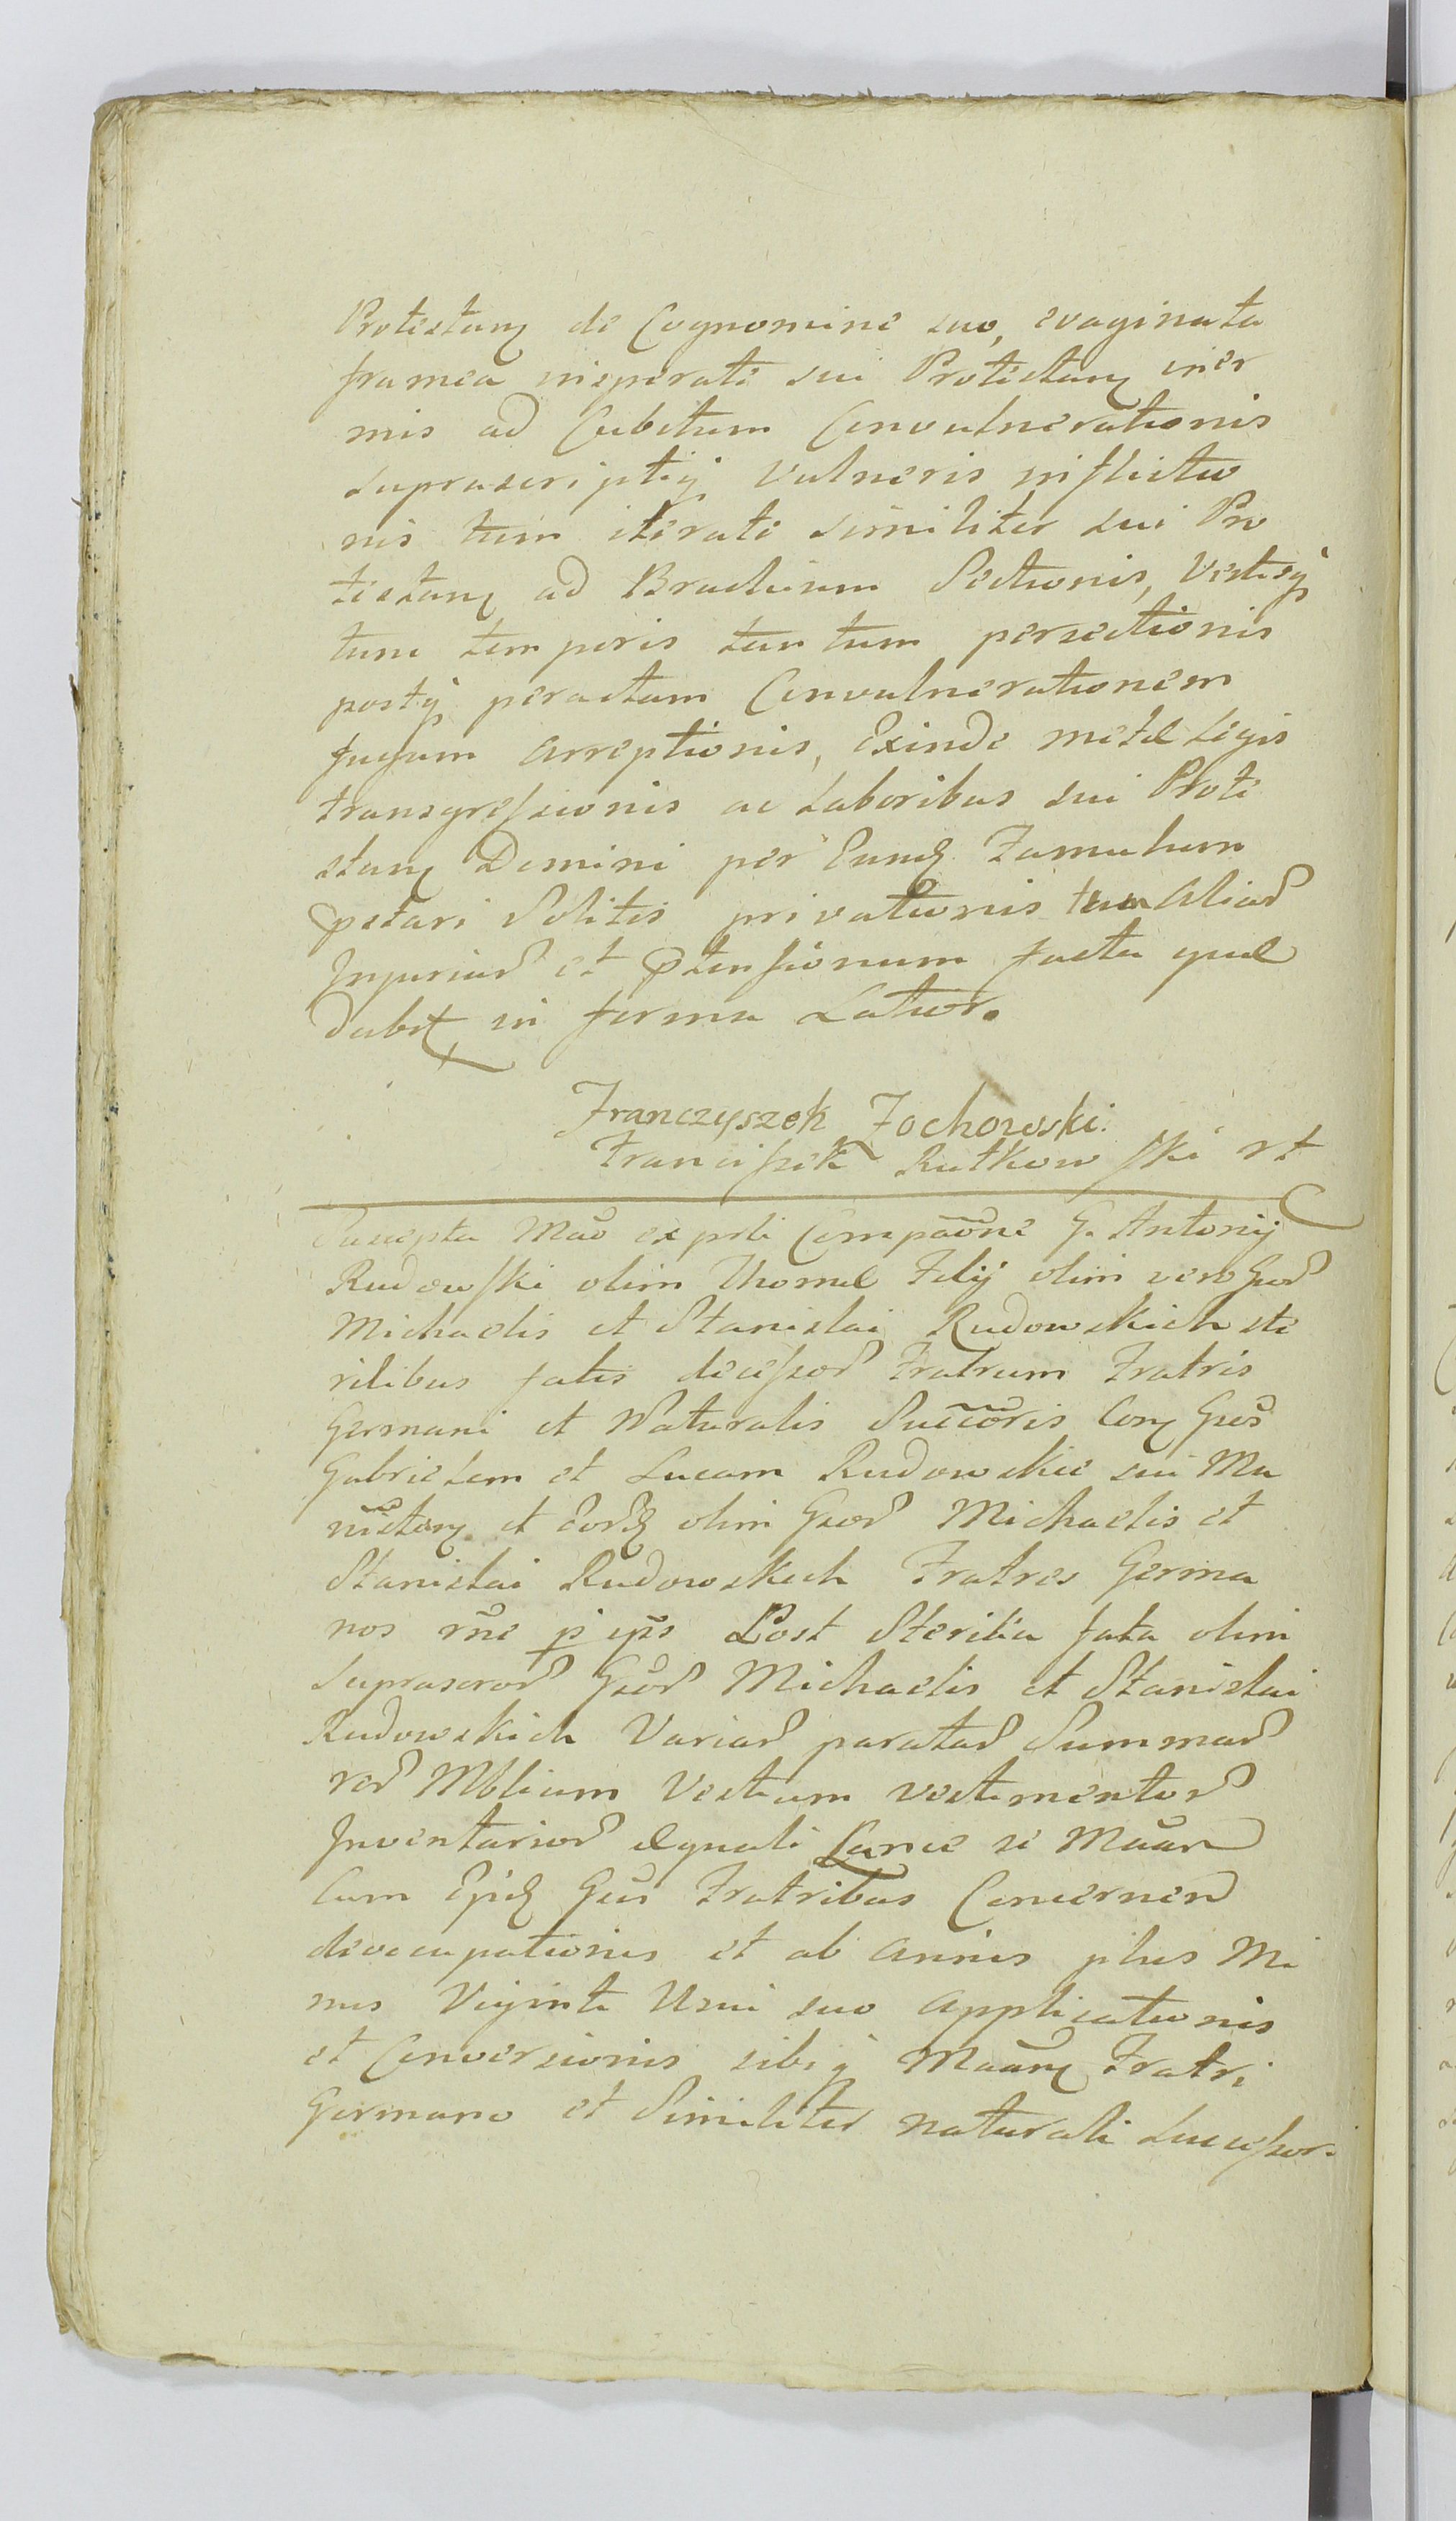 Protestanꝫ de Cognomine suo, evaginata
framea insperate sui Protestanꝫ iner
mis ad Cubitum Convulnerationis
suprascriptiꝗ vulneris inflictio
nis tum iterate similiter sui Pro
testanꝫ ad Brachium Sectionis, Vestisꝗ
tunc temporis tantum persectionis
postꝗ peractam Convulnerationem
fugam arreptionis, Exinde metæ Legis
transgressionis ac Laboribus sui Prote
stanꝫ Domini per Eundꝫ Famulum
pstari Solitis privationis tum Aliarꝝ
Injuriarꝝ et Ptensionum facta quæ
dabit in forma Latior.
Franczyszek Żochowski:
Franciszek Rutkowski rt
Suscepta Mão ex psti Compaõne G. Antonij
Rudowski olim Thomæ Filij olim vero Gsorꝝ
Michaelis et Stanislai Rudowskich ste
rilibus fatis decessorꝝ Fratrum Fratris
Germani et Naturalis Succõris Conꝫ Gsos
Gabrielem et Lucam Rudowskie sui Ma
nñstanꝫ et Eordꝫ olim Gsorꝝ Michaelis et
Stanislai Rudowskich Fratres Germa
nos rñe p ips Post Sterilia fata olim
suprascrorꝝ Gsorꝝ Michaelis et Stanislai
Rudowskich Variarꝝ paratarꝝ Summarꝝ
rerꝝ Mblium Vestium vestimentorꝝ
Inventariorꝝ æquali Lance se Mããn
cum Gsis Fratribus Concernen
deoccupationis et ab annis plus Mi
nus Viginti Usui suo applicationis
et Conversionis sibiꝗ Mããnꝫ Fratri
Germano et Similiter naturali Successori